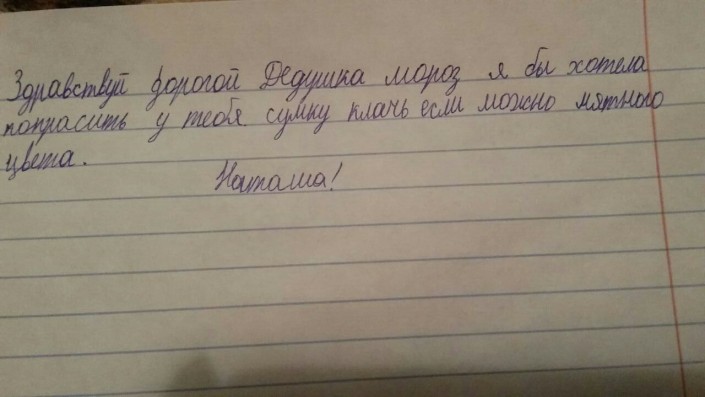 Здравствуй дорогой Дедушка мороз я бы хотела
попрасить у тебя сумку клачь если можно мятного
цвета.
Наташа!